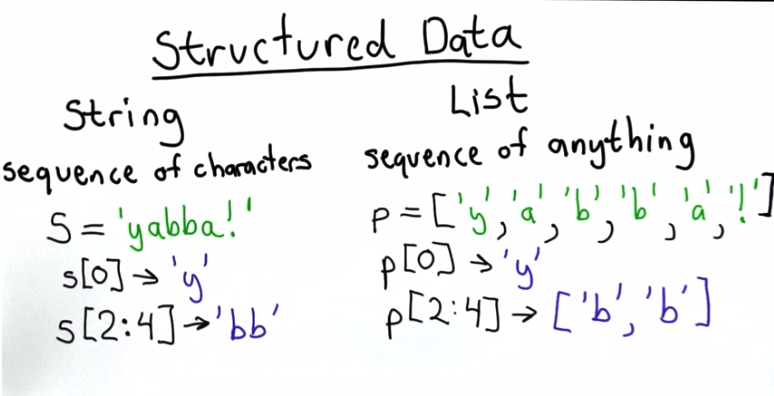 Structured Data
String
sequence of characters
s = 'yabba!'
s[0] → 'y'
s[2:4] → 'bb'
List
sequence of anything
p = ['y', 'a', 'b', 'b', 'a', '!']
p[0] → 'y'
p[2:4] → ['b', 'b']